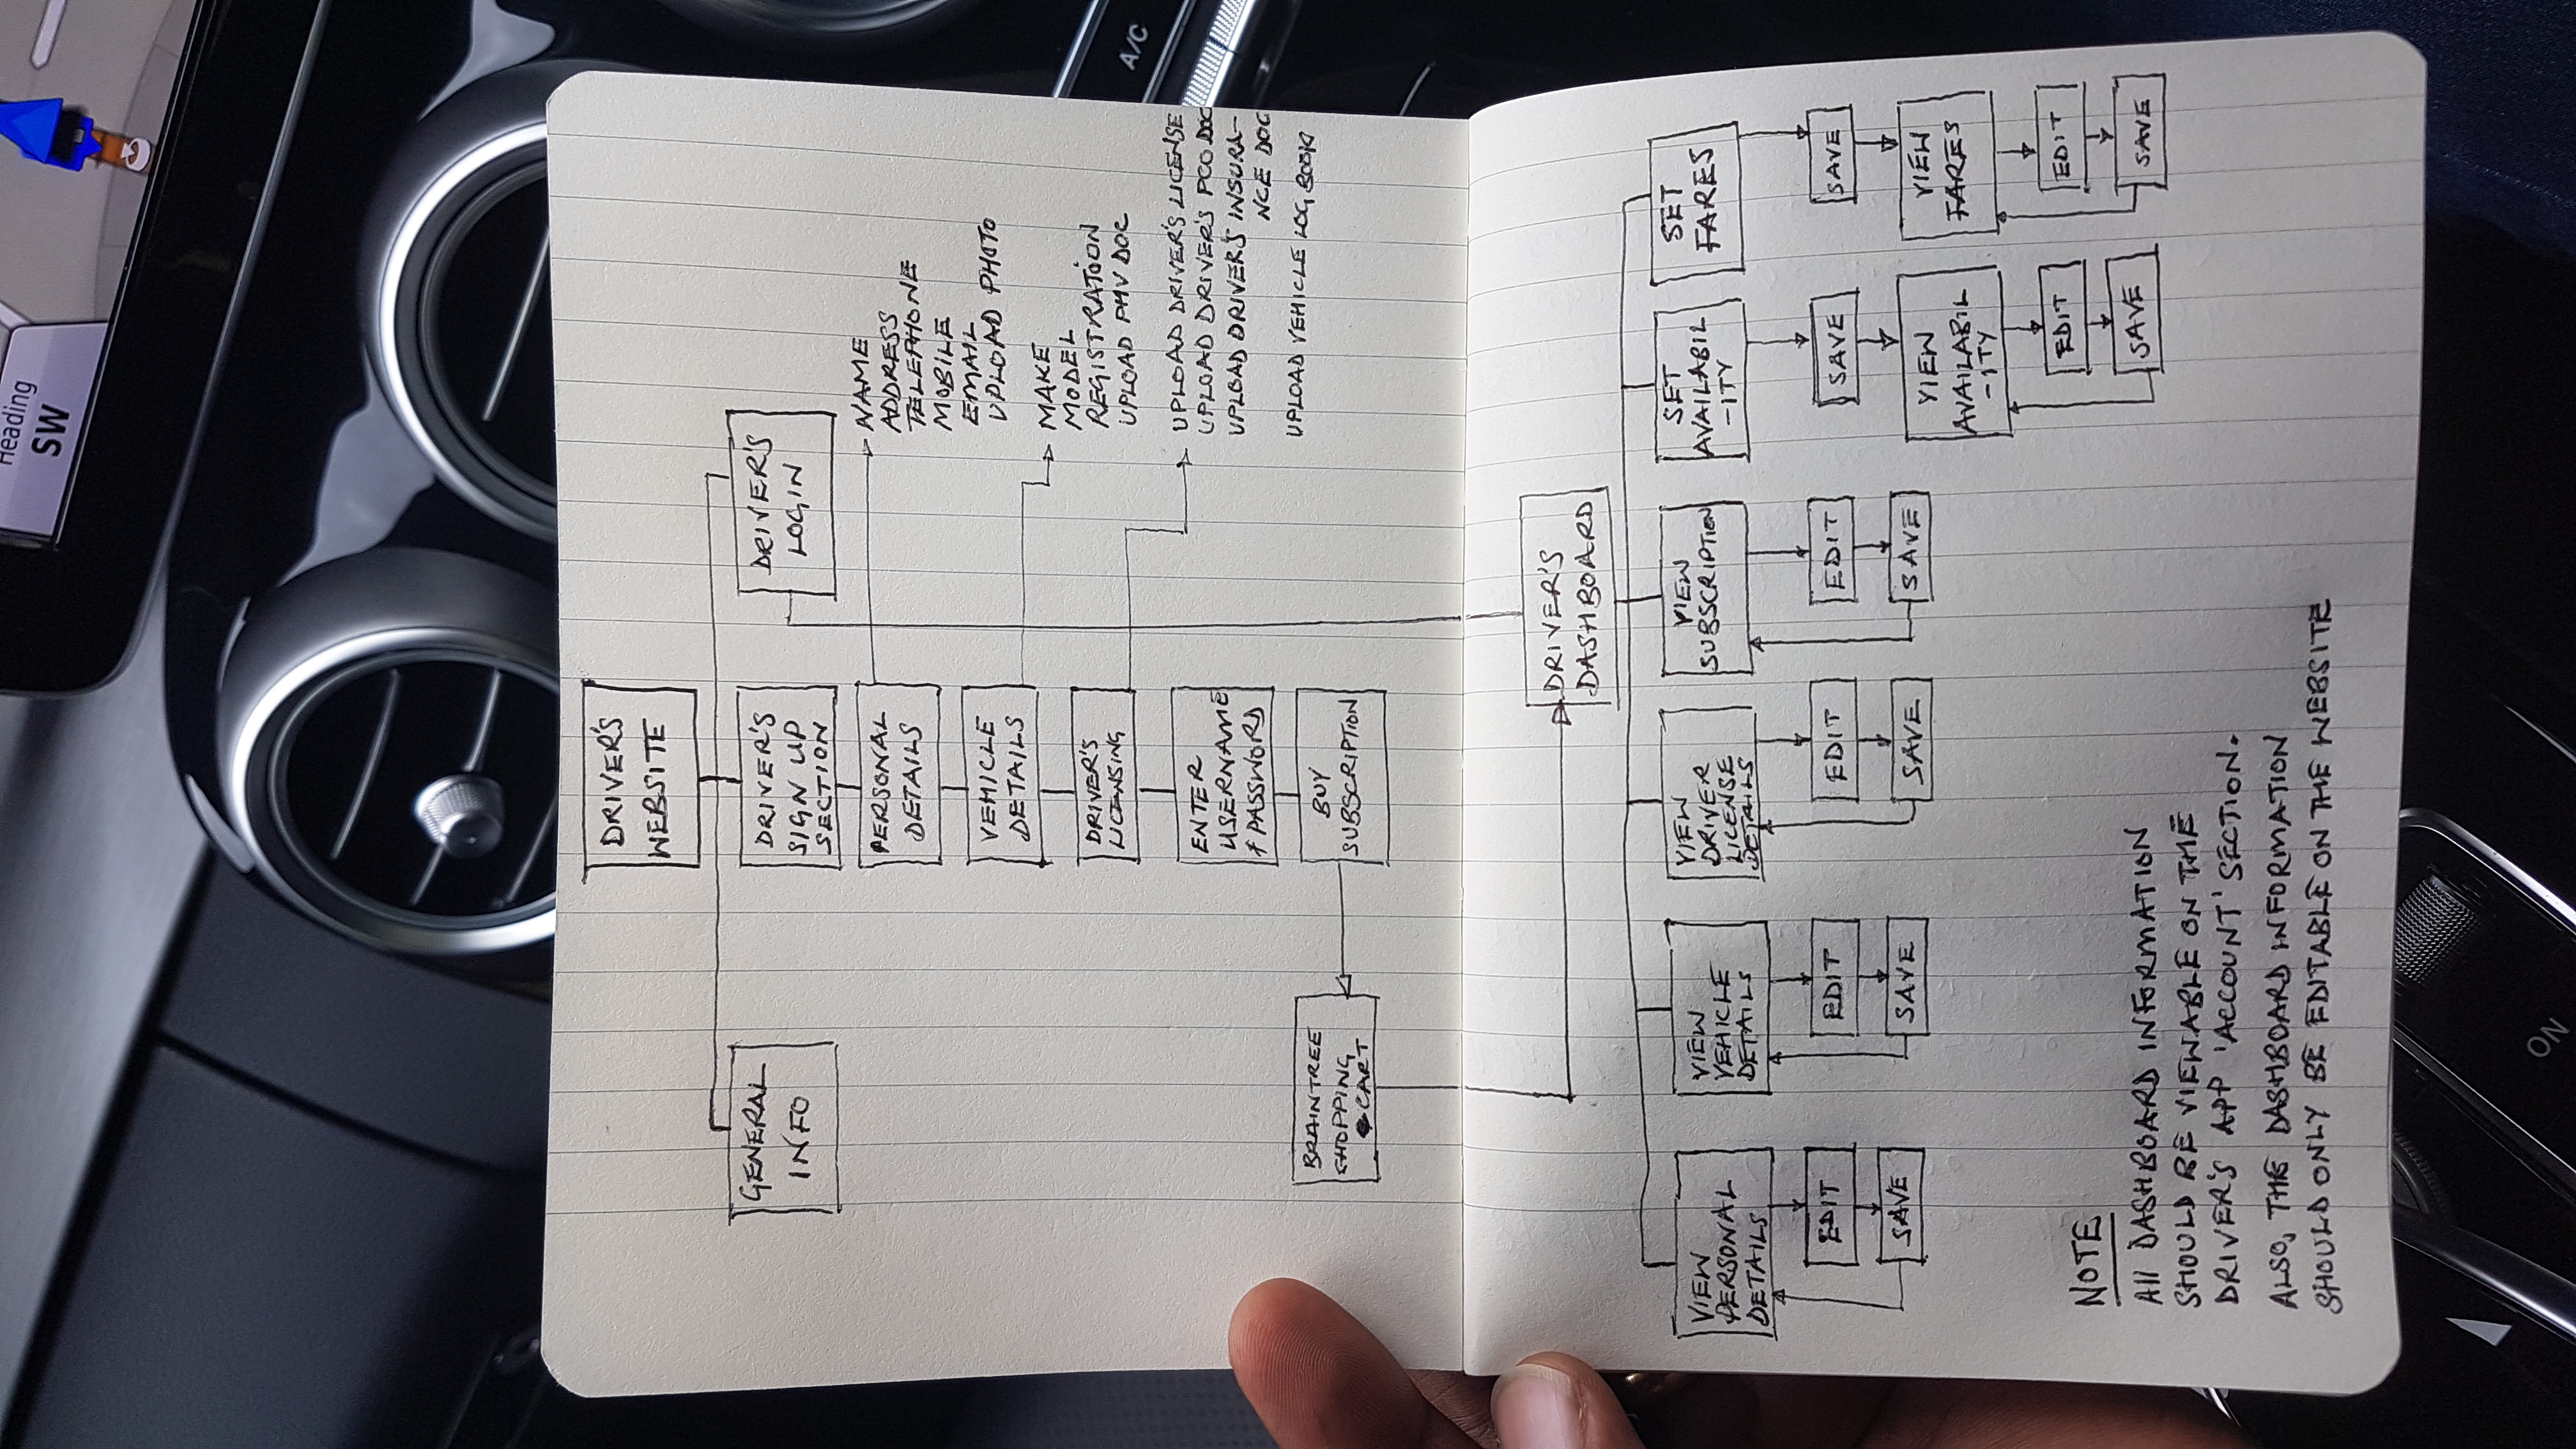 Heading
SW
DRIVER'S
WEBSITE
GENERAL
INFO
DRIVER'S
SIGN UP
SECTION
DRIVER'S
LOGIN
PERSONAL
DETAILS
NAME
ADDRESS
TELEPHONE
MOBILE
EMAIL
UPLOAD PHOTO
VEHICLE
DETAILS
MAKE
MODEL
REGISTRATION
UPLOAD PHV DOC
A/C
DRIVER'S
LICENSING
UPLOAD DRIVER'S LICENSE
UPLOAD DRIVER'S PCO DOC
UPLOAD DRIVER'S INSURA-
NCE DOC
UPLOAD VEHICLE LOG BOOK
ENTER
USERNAME
& PASSWORD
BUY
SUBSCRIPTION
BRAINTREE
SHOPPING
CART
DRIVER'S
DASHBOARD
VIEW
PERSONAL
DETAILS
EDIT
SAVE
VIEW
VEHICLE
DETAILS
EDIT
SAVE
VIEW
DRIVER
LICENSE
DETAILS
EDIT
SAVE
VIEW
SUBSCRIPTION
EDIT
SAVE
SET
AVAILABIL
-ITY
SAVE
VIEW
AVAILABIL
-ITY
EDIT
SAVE
SET
FARES
SAVE
VIEW
FARES
EDIT
SAVE
NOTE
All DASHBOARD INFORMATION
SHOULD BE VIEWABLE ON THE
DRIVER'S APP 'ACCOUNT' SECTION.
ALSO, THE DASHBOARD INFORMATION
SHOULD ONLY BE EDITABLE ON THE WEBSITE
ON